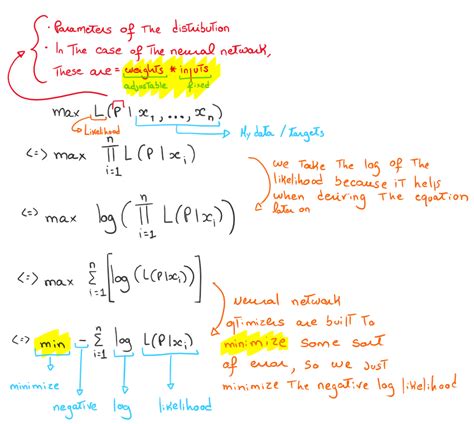 · Parameters of the distribution
· In the case of the neural network,
These are = weights * inputs
adjustable fixed
max L(P | x₁, ..., xₙ)
Likelihood
My data / targets
<=> max ∏ᵢ₌₁ⁿ L(P|xᵢ)
we take the log of the
likelihood because it helps
when deriving the equation
later on
<=> max log(∏ᵢ₌₁ⁿ L(P|xᵢ))
<=> max Σᵢ₌₁ⁿ [log (L(P|xᵢ))]
Neural network
optimizers are built to
minimize some sort
of error, so we just
minimize the negative log likelihood
<=> min - Σᵢ₌₁ⁿ log L(P|xᵢ)
minimize
negative log likelihood